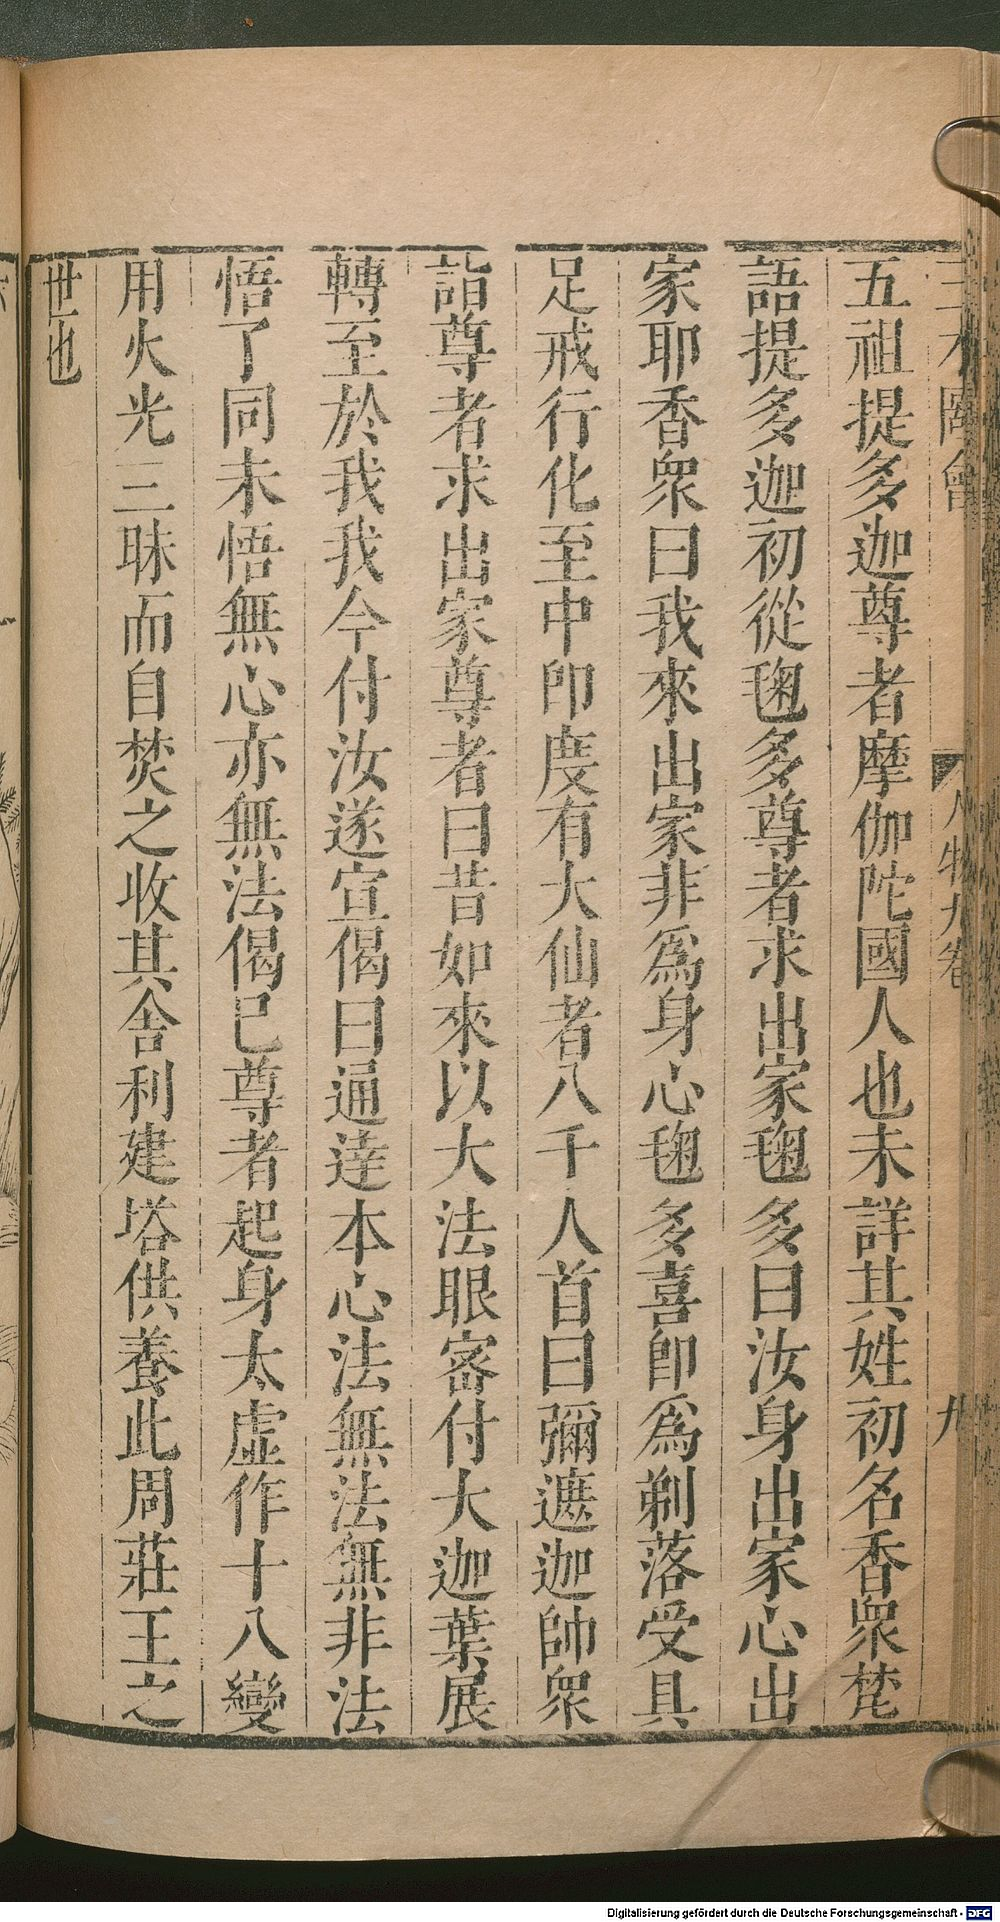 三才圖會 人物九卷 九
五祖提多迦尊者摩伽陀國人也未詳其姓初名香衆梵
語提多迦初從毱多尊者求出家毱多曰汝身出家心出
家耶香衆曰我來出家非爲身心毱多喜即爲剃落受具
足戒行化至中印度有大仙者八千人首曰彌遮迦帥衆
詣尊者求出家尊者曰昔如來以大法眼密付大迦葉展
轉至於我我今付汝遂宣偈曰通達本心法無法無非法
悟了同未悟無心亦無法偈已尊者起身太虛作十八變
用火光三昧而自焚之收其舍利建塔供養此周莊王之
世也
Digitalisierung gefördert durch die Deutsche Forschungsgemeinschaft - DFG